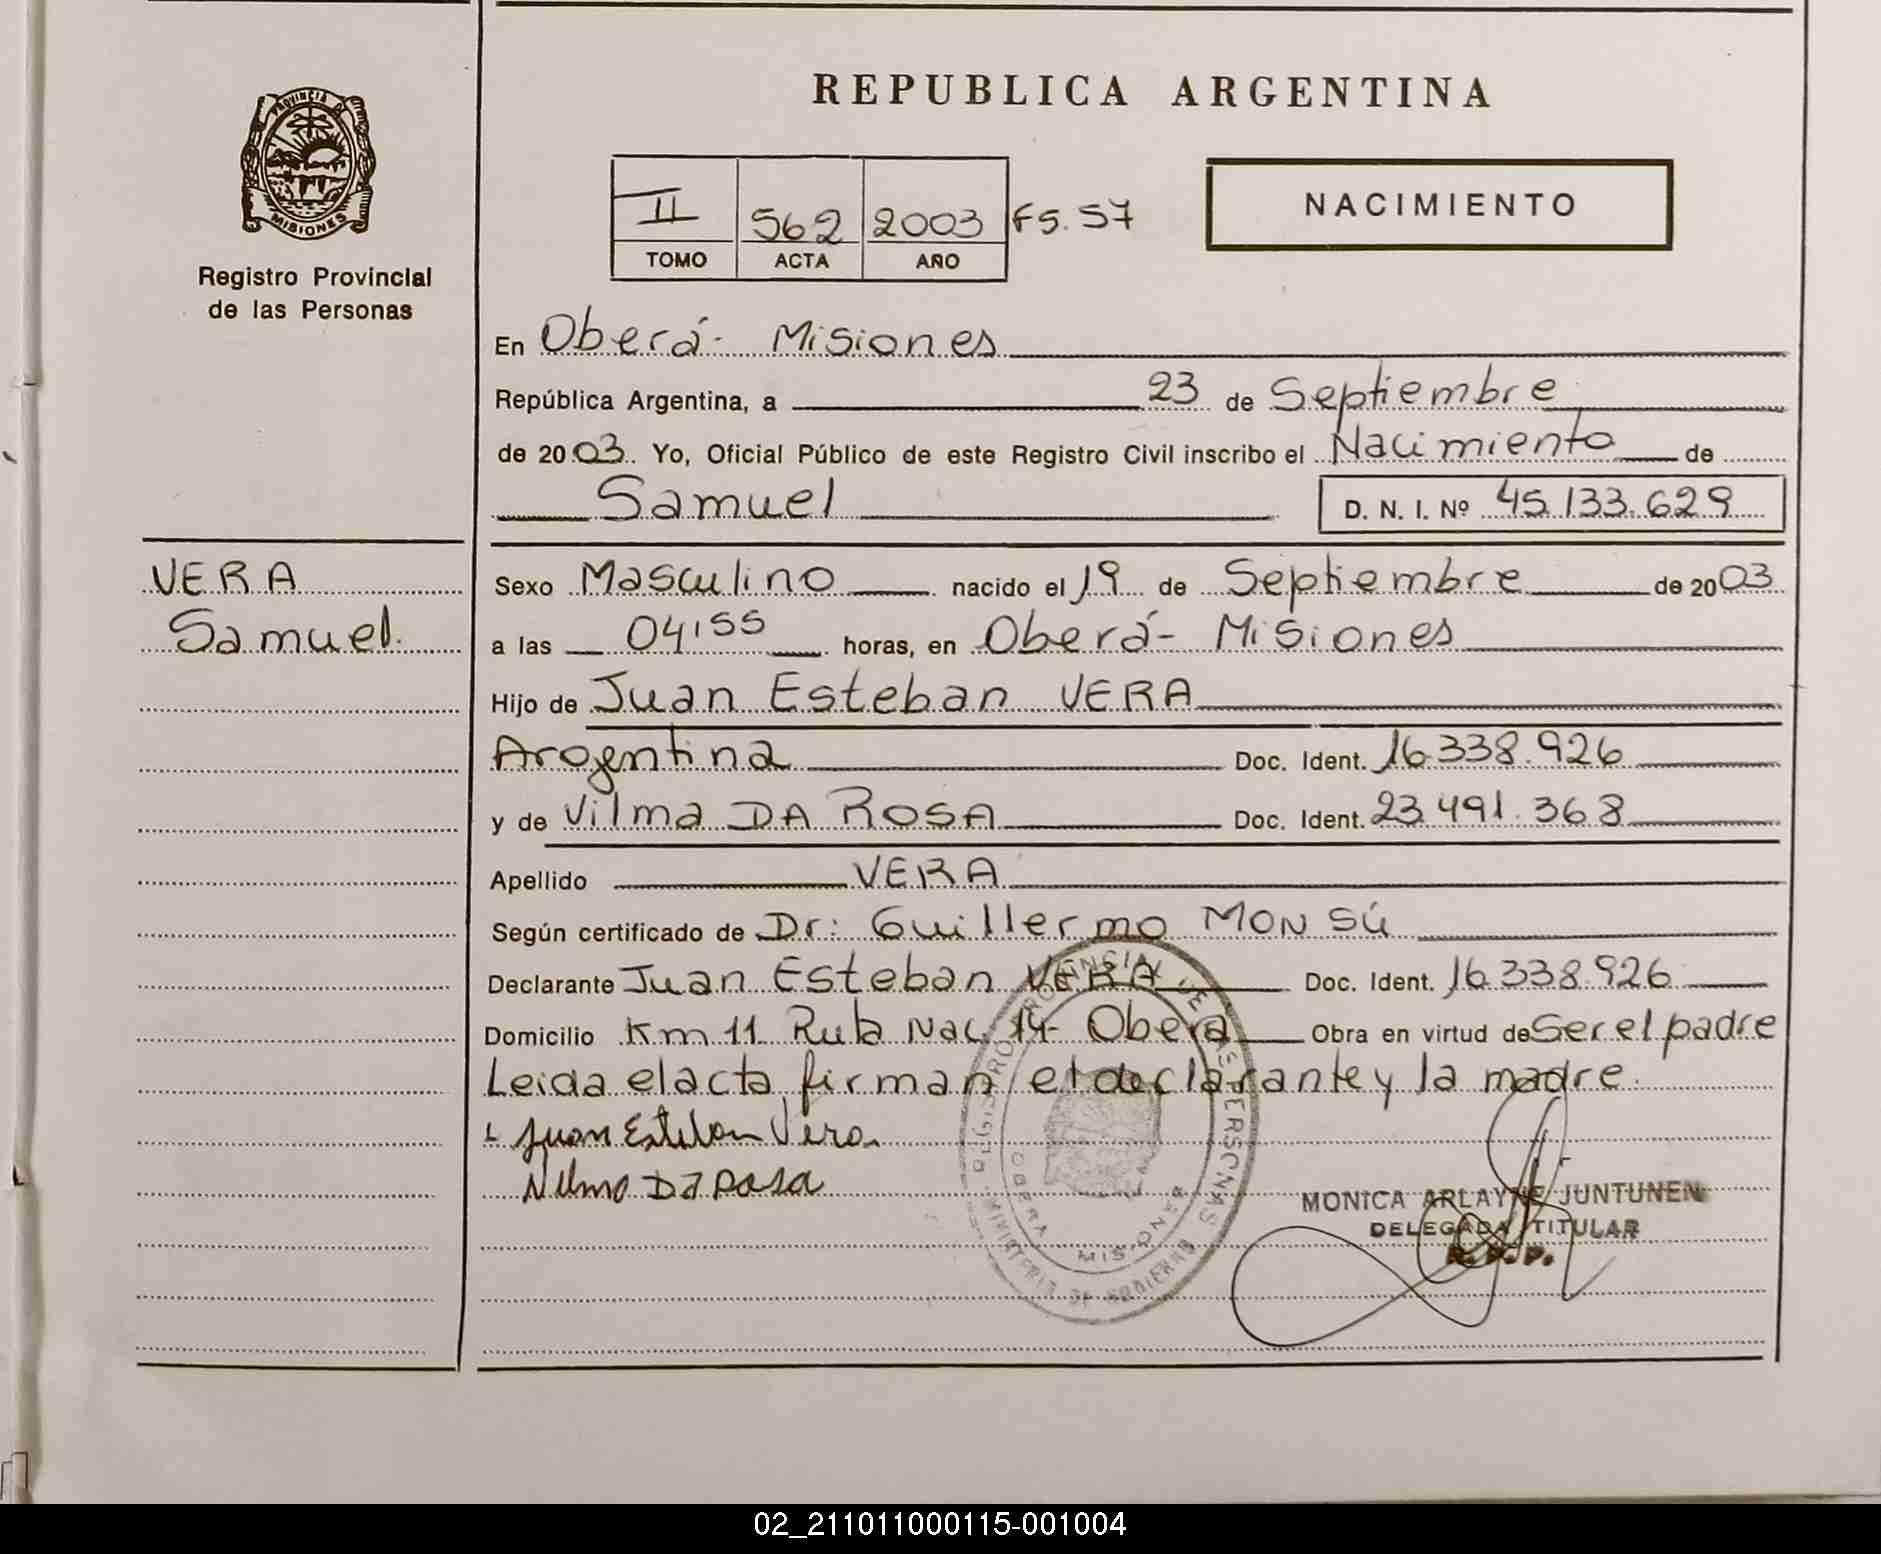 REPUBLICA ARGENTINA
PROVINCIA D
MISIONES
Registro Provincial
de las Personas
II 562 2003 Fs. 57
TOMO ACTA AÑO
NACIMIENTO
En Oberá- Misiones
República Argentina, a 23 de Septiembre
de 2003. Yo, Oficial Público de este Registro Civil inscribo el Nacimiento de
Samuel D. N. I. Nº 45.133.629
VERA
Samuel.
Sexo Masculino nacido el 19 de Septiembre de 2003
a las 04,55 horas, en Oberá- Misiones
Hijo de Juan Esteban VERA
Argentina Doc. Ident. 16.338.926
y de Vilma DA ROSA Doc. Ident. 23.491.368
Apellido VERA
Según certificado de Dr: Guillermo MONSÚ
Declarante Juan Esteban VERA Doc. Ident. 16.338.926
Domicilio Km 11 Ruta Nac 14- Oberá Obra en virtud de Ser el padre
Leida el acta firman el declarante y la madre.
Juan Esteban Vera
Vilma Da Rosa
REGISTRO PROVINCIAL DE LAS PERSONAS
MINISTERIO DE GOBIERNO
OBERA MISIONES
MONICA ARLAYNE JUNTUNEN
DELEGADA TITULAR
R. P. P.
02_211011000115-001004